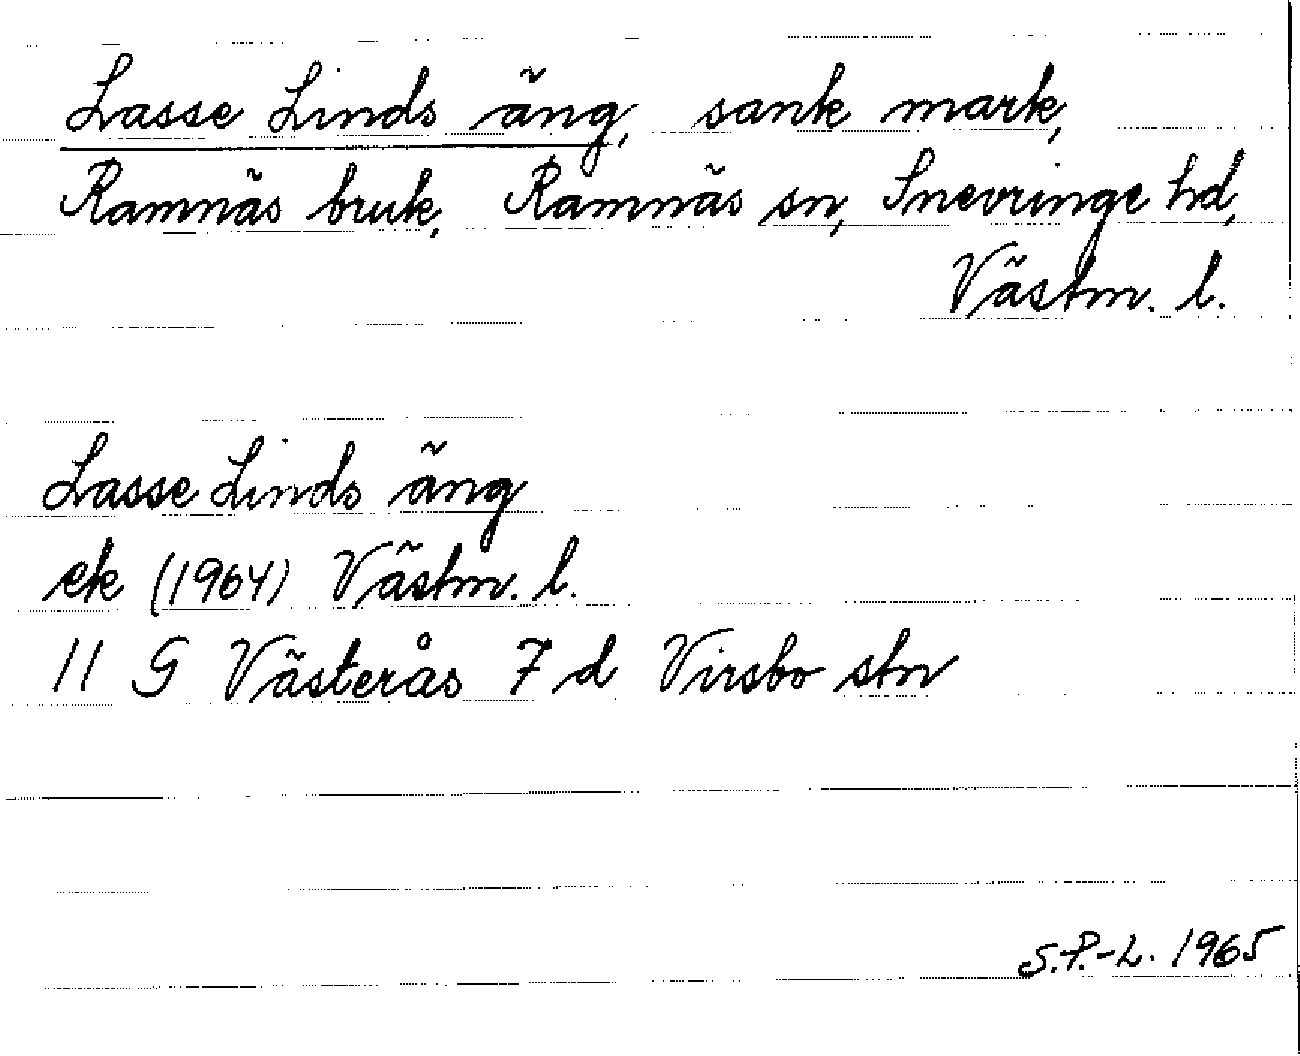 Lasse Linds äng, sank mark,
Ramnäs bruk, Ramnäs sn, Snevringe hd,
Västm. l.
Lasse Linds äng
ek (1964) Västm. l.
11 G Västerås 7 d Virsbo stn
S.P.-L. 1965